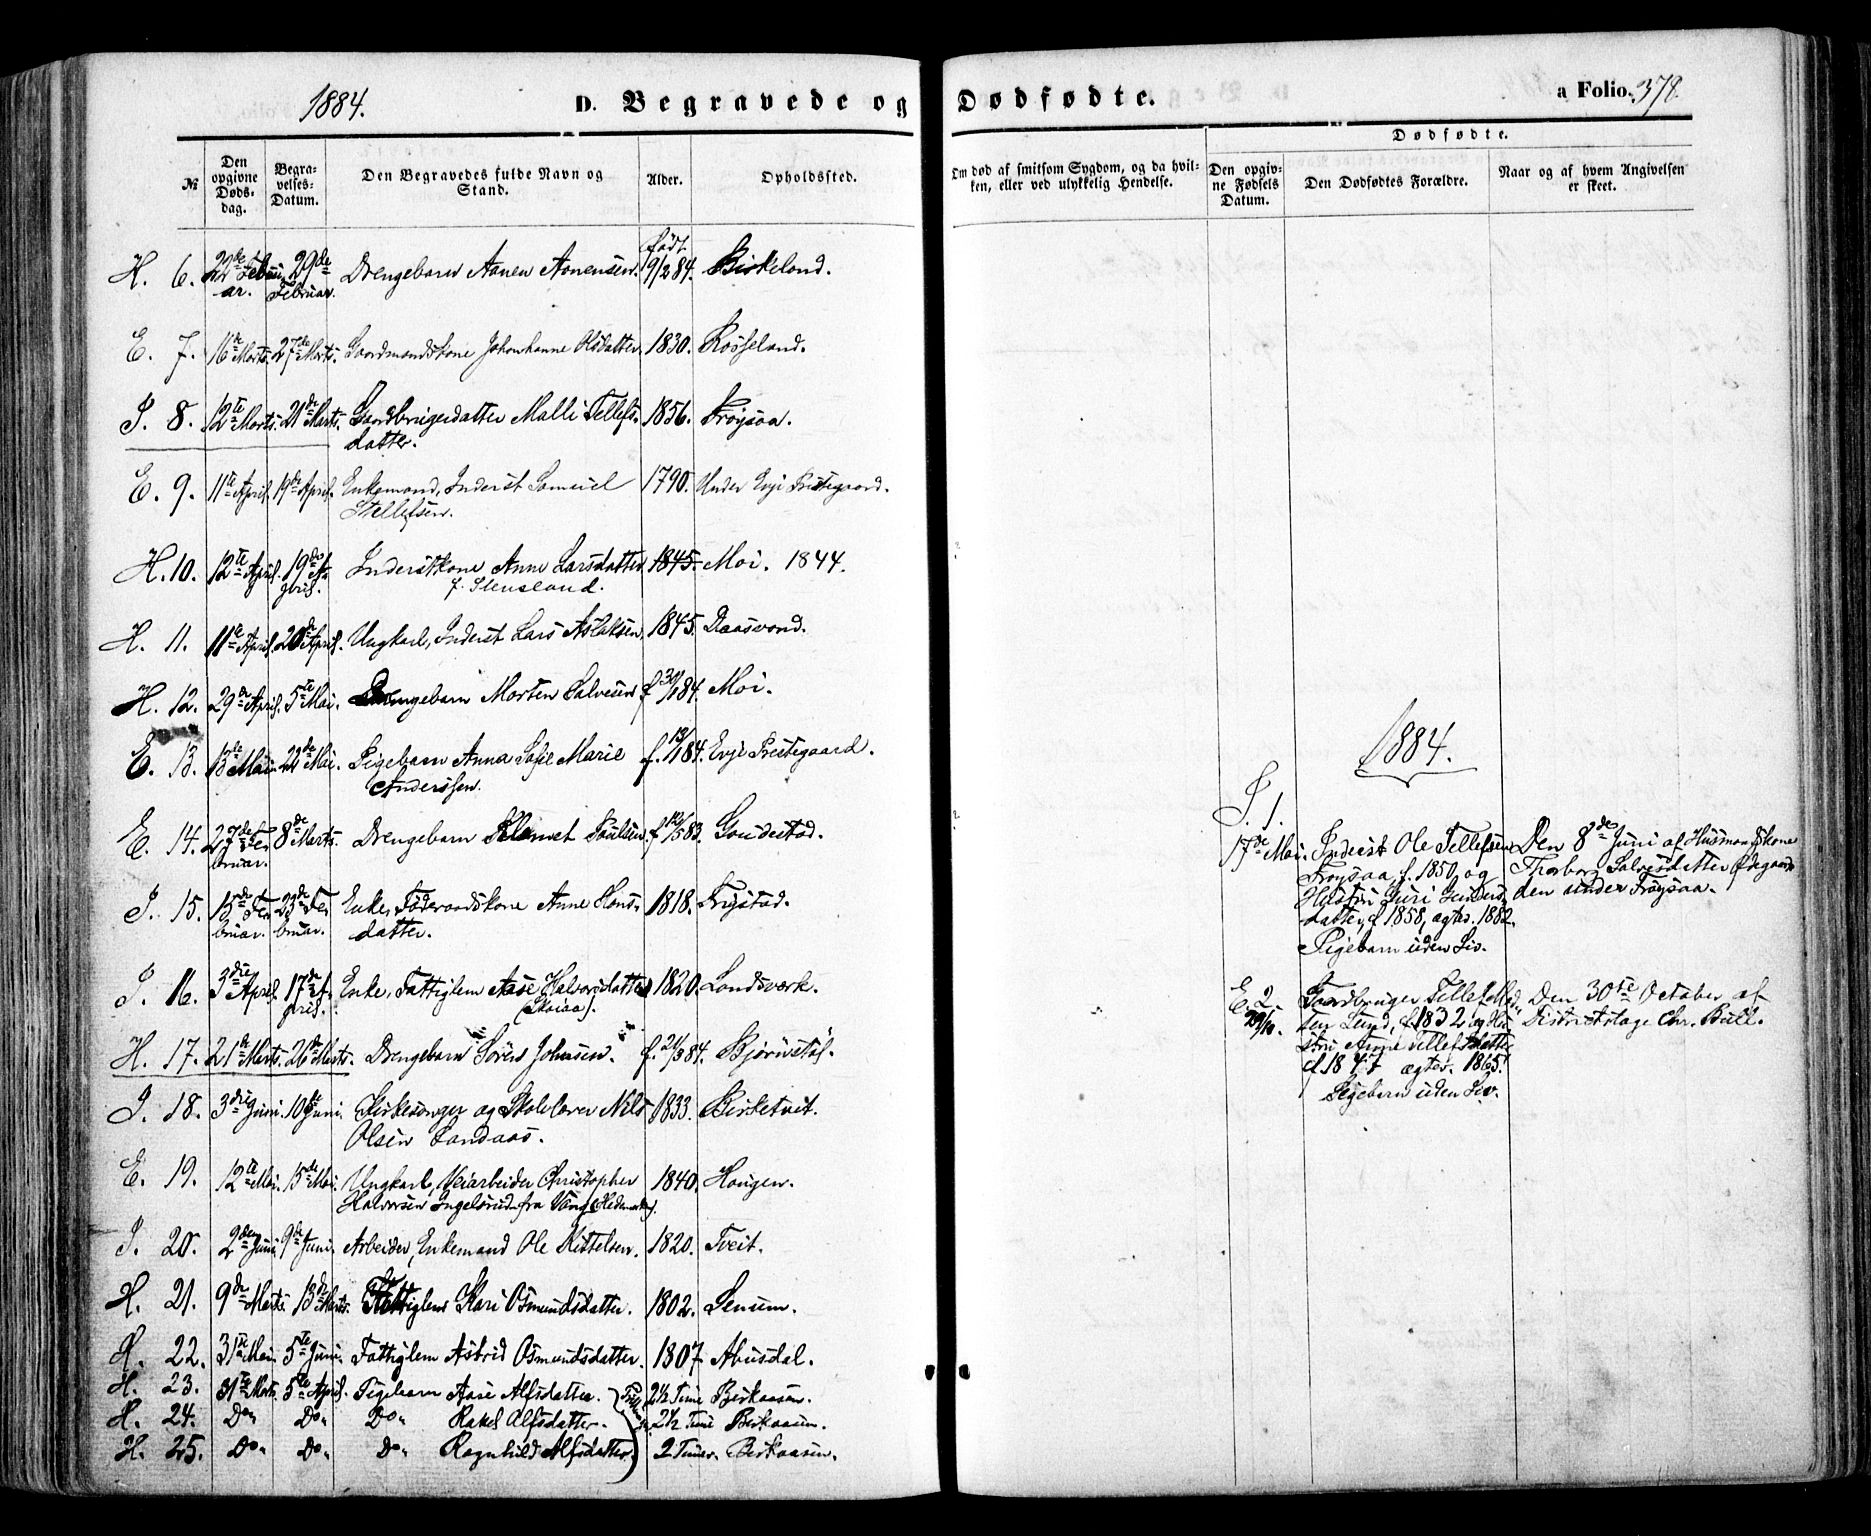 1884. D. Begravede og Dødfødte. a Folio. 378.
№ Den opgivne Døds-dag. Begra-velses-Datum. Den Begravedes fulde Navn og Stand. Alder. Opholdssted. Om død af smitsom Sygdom, og da hvil-ken, eller ved ulykkelig Hendelse. Dødfødte. Den opgiv-ne Fødsels Datum. Den Dødfødtes Forældre. Naar og af hvem Angivelsen er skeet.
H. 6. 22de Februar. 29de Februar. Drengebarn Aanen Aanensen. født 19/2 84. Birkeland.
E. 7. 16de Marts. 27de Marts. Gaardmandskone Johanne Olsdatter 1830. Rosseland.
I. 8. 12te Marts. 21de Marts. Gaardbrugerdatter Malli Tellefs-
datter. 1856. Frøysaa.
E. 9. 11te April. 19de April. Enkemand, Inderst Samuel
Stellefsen. 1790. Under Evje Prestegaard.
H. 10. 12te April. 19de April. Inderstkone Anne Larsdatter 1845. Moi. 1844.
f. Stensland.
H. 11. 11te April. 20de April. Ungkarl, Inderst Lars Aslaksen 1845. Daasvand.
H. 12. 29de April. 5te Mai. Drengebarn Morten Salvesen f. 30/1 84. Moi.
E. 13. 13de Mai. 22de Mai. Pigebarn Anna Sofie Marie
Anderssen. f. 13/1 84. Evje Prestegaard.
E. 14. 27de Februar. 8de Marts. Drengebarn Klemet Poulsen. f. 12/5 83. Gaudestad.
I. 15. 15de Februar. 23de Februar. Enke, Føderaadskone Anne Hans-
datter. 1818. Frøstad.
I. 16. 3die April. 17de April. Enke, Fattiglem Aase Halvorsdatter 1820. Landsverk.
(Skoiaa).
H. 17. 21de Marts. 26de Marts. Drengebarn Søren Johnsen. f. 21/3 84. Bjørnstøl.
I. 18. 3die Juni. 10de Juni. Kirkesanger og Skolelærer Nils
Olsen Landaas. 1833. Birketveit.
E. 19. 12te Mai. 15de Mai. Ungkarl, Veiarbeider Christopher
Halvorsen Ingelsrud fra Vang (Hedemarken). 1840. Haugen.
I. 20. 2den Juni. 9de Juni. Arbeider, Enkemand Ole Kittelsen. 1820. Tveit.
H. 21. 9de Marts. 13de Marts. Fattiglem Kari Osmundsdatter. 1802. Senum.
H. 22. 31te Mai. 5te Juni. Fattiglem Astrid Osmundsdatter. 1807. Abusdal.
H. 23. 31te Marts. 5te April. Pigebarn Aase Alfsdatter. 2½ Time Birkaasen.
H. 24. Do Do Do Rakel Alfsdatter. 2½ Time Birkaasen.
H. 25. Do Do Do Ragnhild Alfsdatter. 2 Timer. Birkaasen.
1884.
I. 1.
17de Mai. Inderst Ole Tellefsen Den 8de Juni af Husmandskone
Frøysaa, f. 1850, og Thorbor Salvesdatter Ødegaar-
Hustru Guri Gunders- den under Frøysaa.
datter, f. 1858, egtev. 1882.
Pigebarn uden Liv.
E. 2. Gaardbruger Tellef Mor- Den 30te October af
29/10. ten Lund, f. 1832 og Hu- Districtslæge Chr. Bull.
stru Anne Tellefsdatter
f. 1847 egtev. 1865.
Pigebarn uden Liv.